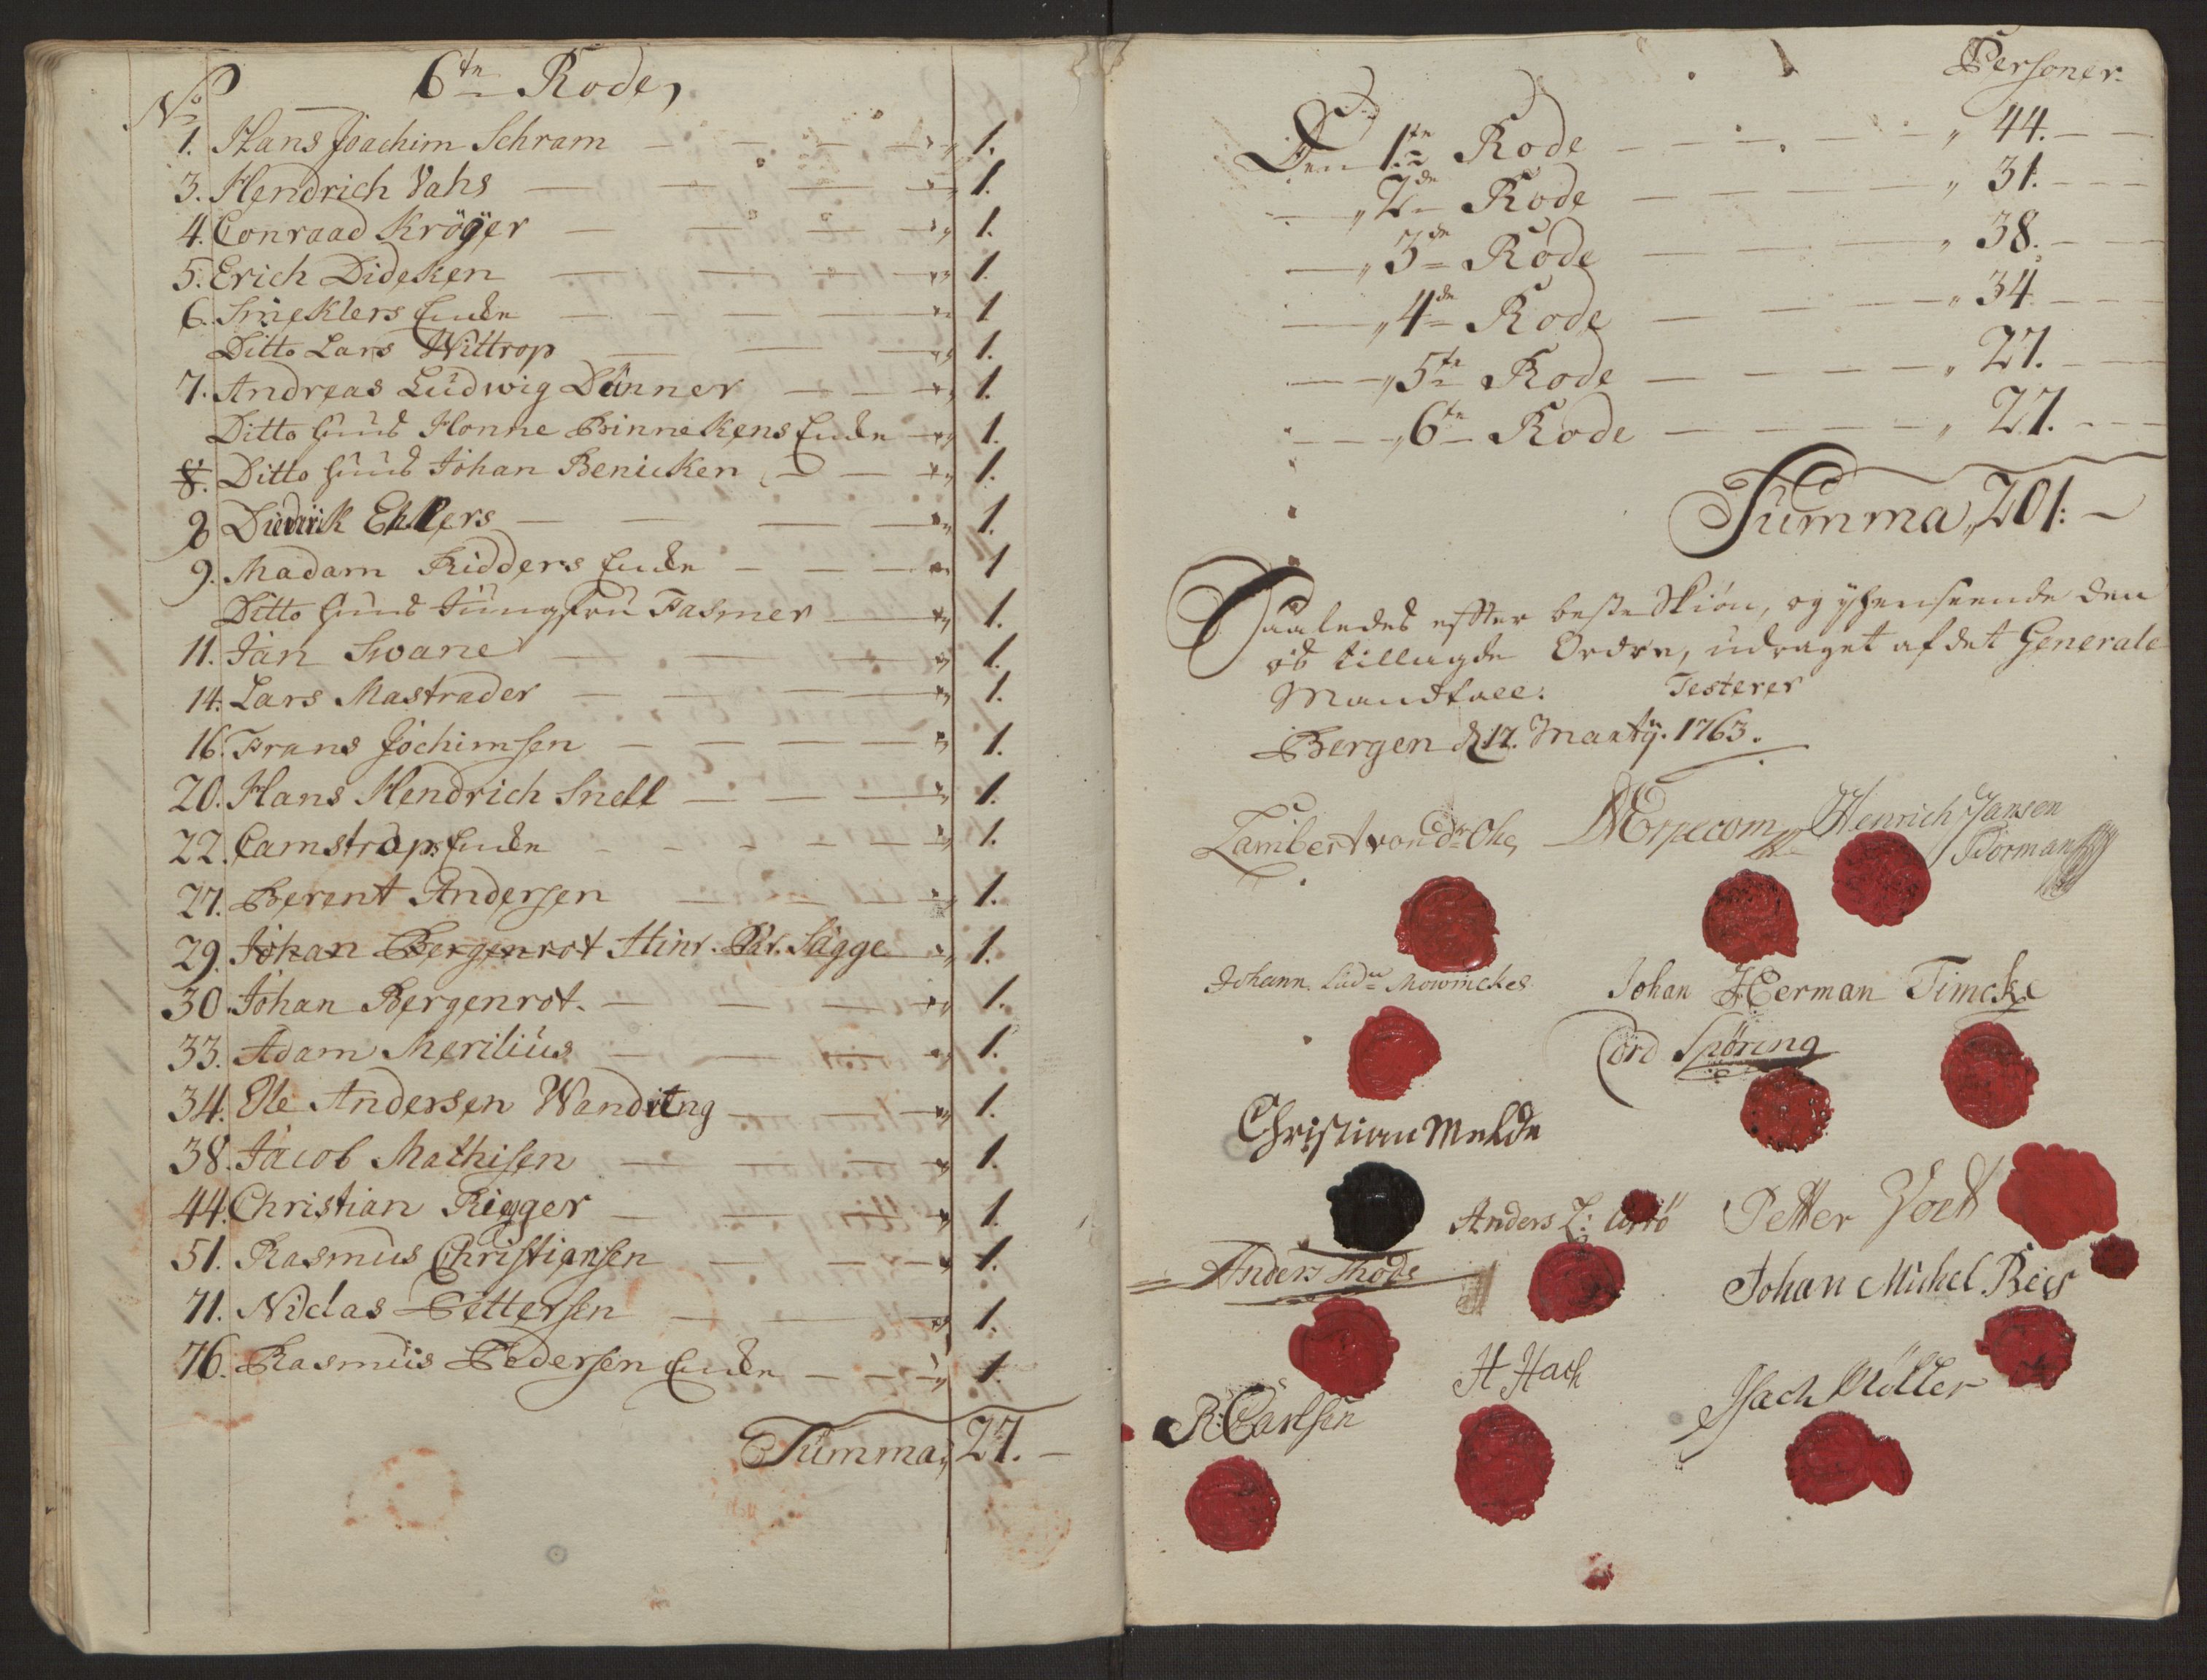 6te Rode,
No
1. Hans Joachim Schram 1.
3. Hendrich Vahs 1.
4. Conraad Kröÿer 1.
5. Erich Dideken 1.
6. Smeklers Enke 1
Ditto Lars Wittrop 1.
7. Andreas Ludwig Dänner 1.
Ditto huus Honne Binnekens Enke 1.
8. Ditto huus Johan Benicken 1.
8 Diedrik Ehlers 1.
9. Madam Ridders Enke 1
Ditto huus Jüngfru Fasmer 1.
11. Jan Swane 1.
14. Lars Mastrader 1.
16. Frans Jochimsen 1.
20. Hans Hendrich Snell 1.
22. Camstrops Enke 1.
27. Berent Andersen 1.
29. Johan Bergenrot Hinr. Sagge 1.
30. Johan Bergenrot. 1.
33. Adam Merilius 1.
34. Ole Andersen Wanding 1.
38. Jacob Mathisen 1.
44. Christian Rigger 1.
51. Rasmus Christiansen 1.
71. Niclas Pettersen 1.
76. Rasmus Pedersen Enke 1.
Summa, 27.
Personer.
Den 1te Rode 44.
2de Rode 31.
3de Rode 38.
4de Rode 34
5te Rode 27.
6te Rode 27.
Summa, 201.
Saaledes effter beste Skiøn, og den
os tillagde Ordre, udraget af det Generale
Mandtall. Testerer
Bergen d 17. Martÿ. 1763.
Lambert von dr Ohe, Henrich Jansen
Dorman
Johann Lud Mowinckel Johan Herman Timcke
Cord Spöring
Christian Melde
Anders L: Petter Voet
Anders Thode
Johan Michel Reis
H Hach
R: Carlsen Isach Möller